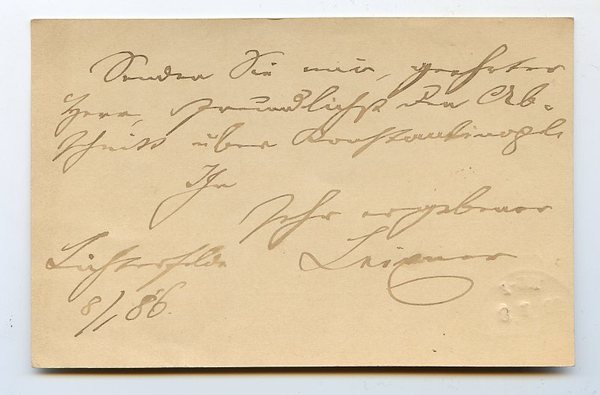 Senden Sie mir, geehrter
Herr, freundlichst den Ab-
schnitt über Konstantinopel.
Ihr
sehr ergebener
Lichterfelde Leixner
8/1 86.